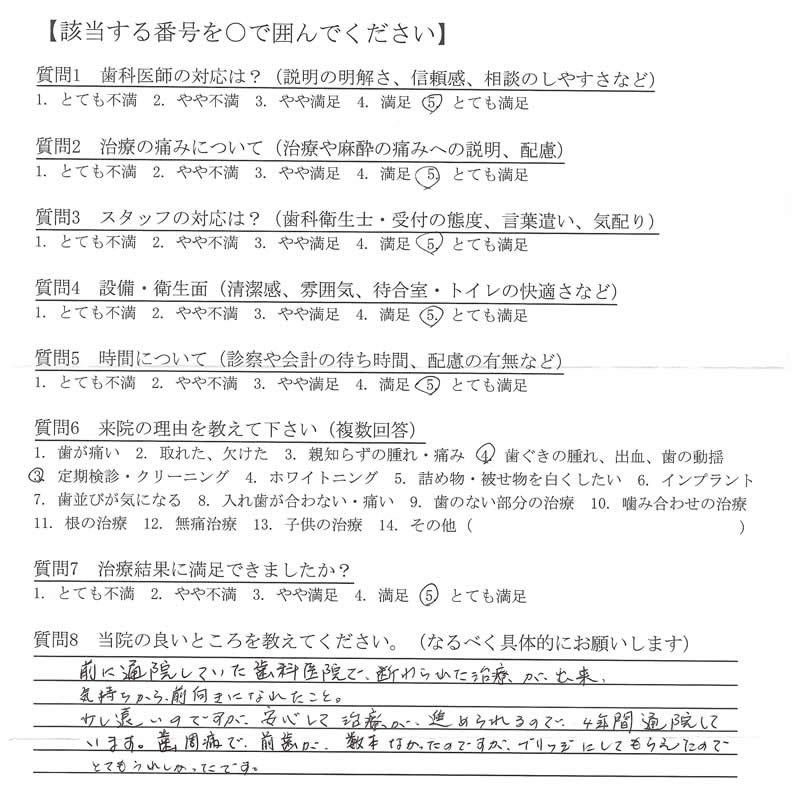 【該当する番号を○で囲んでください】
質問1 歯科医師の対応は？（説明の明解さ、信頼感、相談のしやすさなど）
1. とても不満 2. やや不満 3. やや満足 4. 満足 5. とても満足
質問2 治療の痛みについて（治療や麻酔の痛みへの説明、配慮）
1. とても不満 2. やや不満 3. やや満足 4. 満足 5. とても満足
質問3 スタッフの対応は？（歯科衛生士・受付の態度、言葉遣い、気配り）
1. とても不満 2. やや不満 3. やや満足 4. 満足 5. とても満足
質問4 設備・衛生面（清潔感、雰囲気、待合室・トイレの快適さなど）
1. とても不満 2. やや不満 3. やや満足 4. 満足 5. とても満足
質問5 時間について（診察や会計の待ち時間、配慮の有無など）
1. とても不満 2. やや不満 3. やや満足 4. 満足 5. とても満足
質問6 来院の理由を教えて下さい（複数回答）
1. 歯が痛い 2. 取れた、欠けた 3. 親知らずの腫れ・痛み 4. 歯ぐきの腫れ、出血、歯の動揺
3. 定期検診・クリーニング 4. ホワイトニング 5. 詰め物・被せ物を白くしたい 6. インプラント
7. 歯並びが気になる 8. 入れ歯が合わない・痛い 9. 歯のない部分の治療 10. 噛み合わせの治療
11. 根の治療 12. 無痛治療 13. 子供の治療 14. その他（ ）
質問7 治療結果に満足できましたか？
1. とても不満 2. やや不満 3. やや満足 4. 満足 5. とても満足
質問8 当院の良いところを教えてください。（なるべく具体的にお願いします）
前に通院していた歯科医院で、断わられた治療が出来、
気持ちから前向きになれたこと。
少し遠いのですが、安心して治療が、進められるので、4年間通院して
います。歯周病で、前歯が、数本なかったのですが、ブリッジにしてもらえたので
とてもうれしかったです。